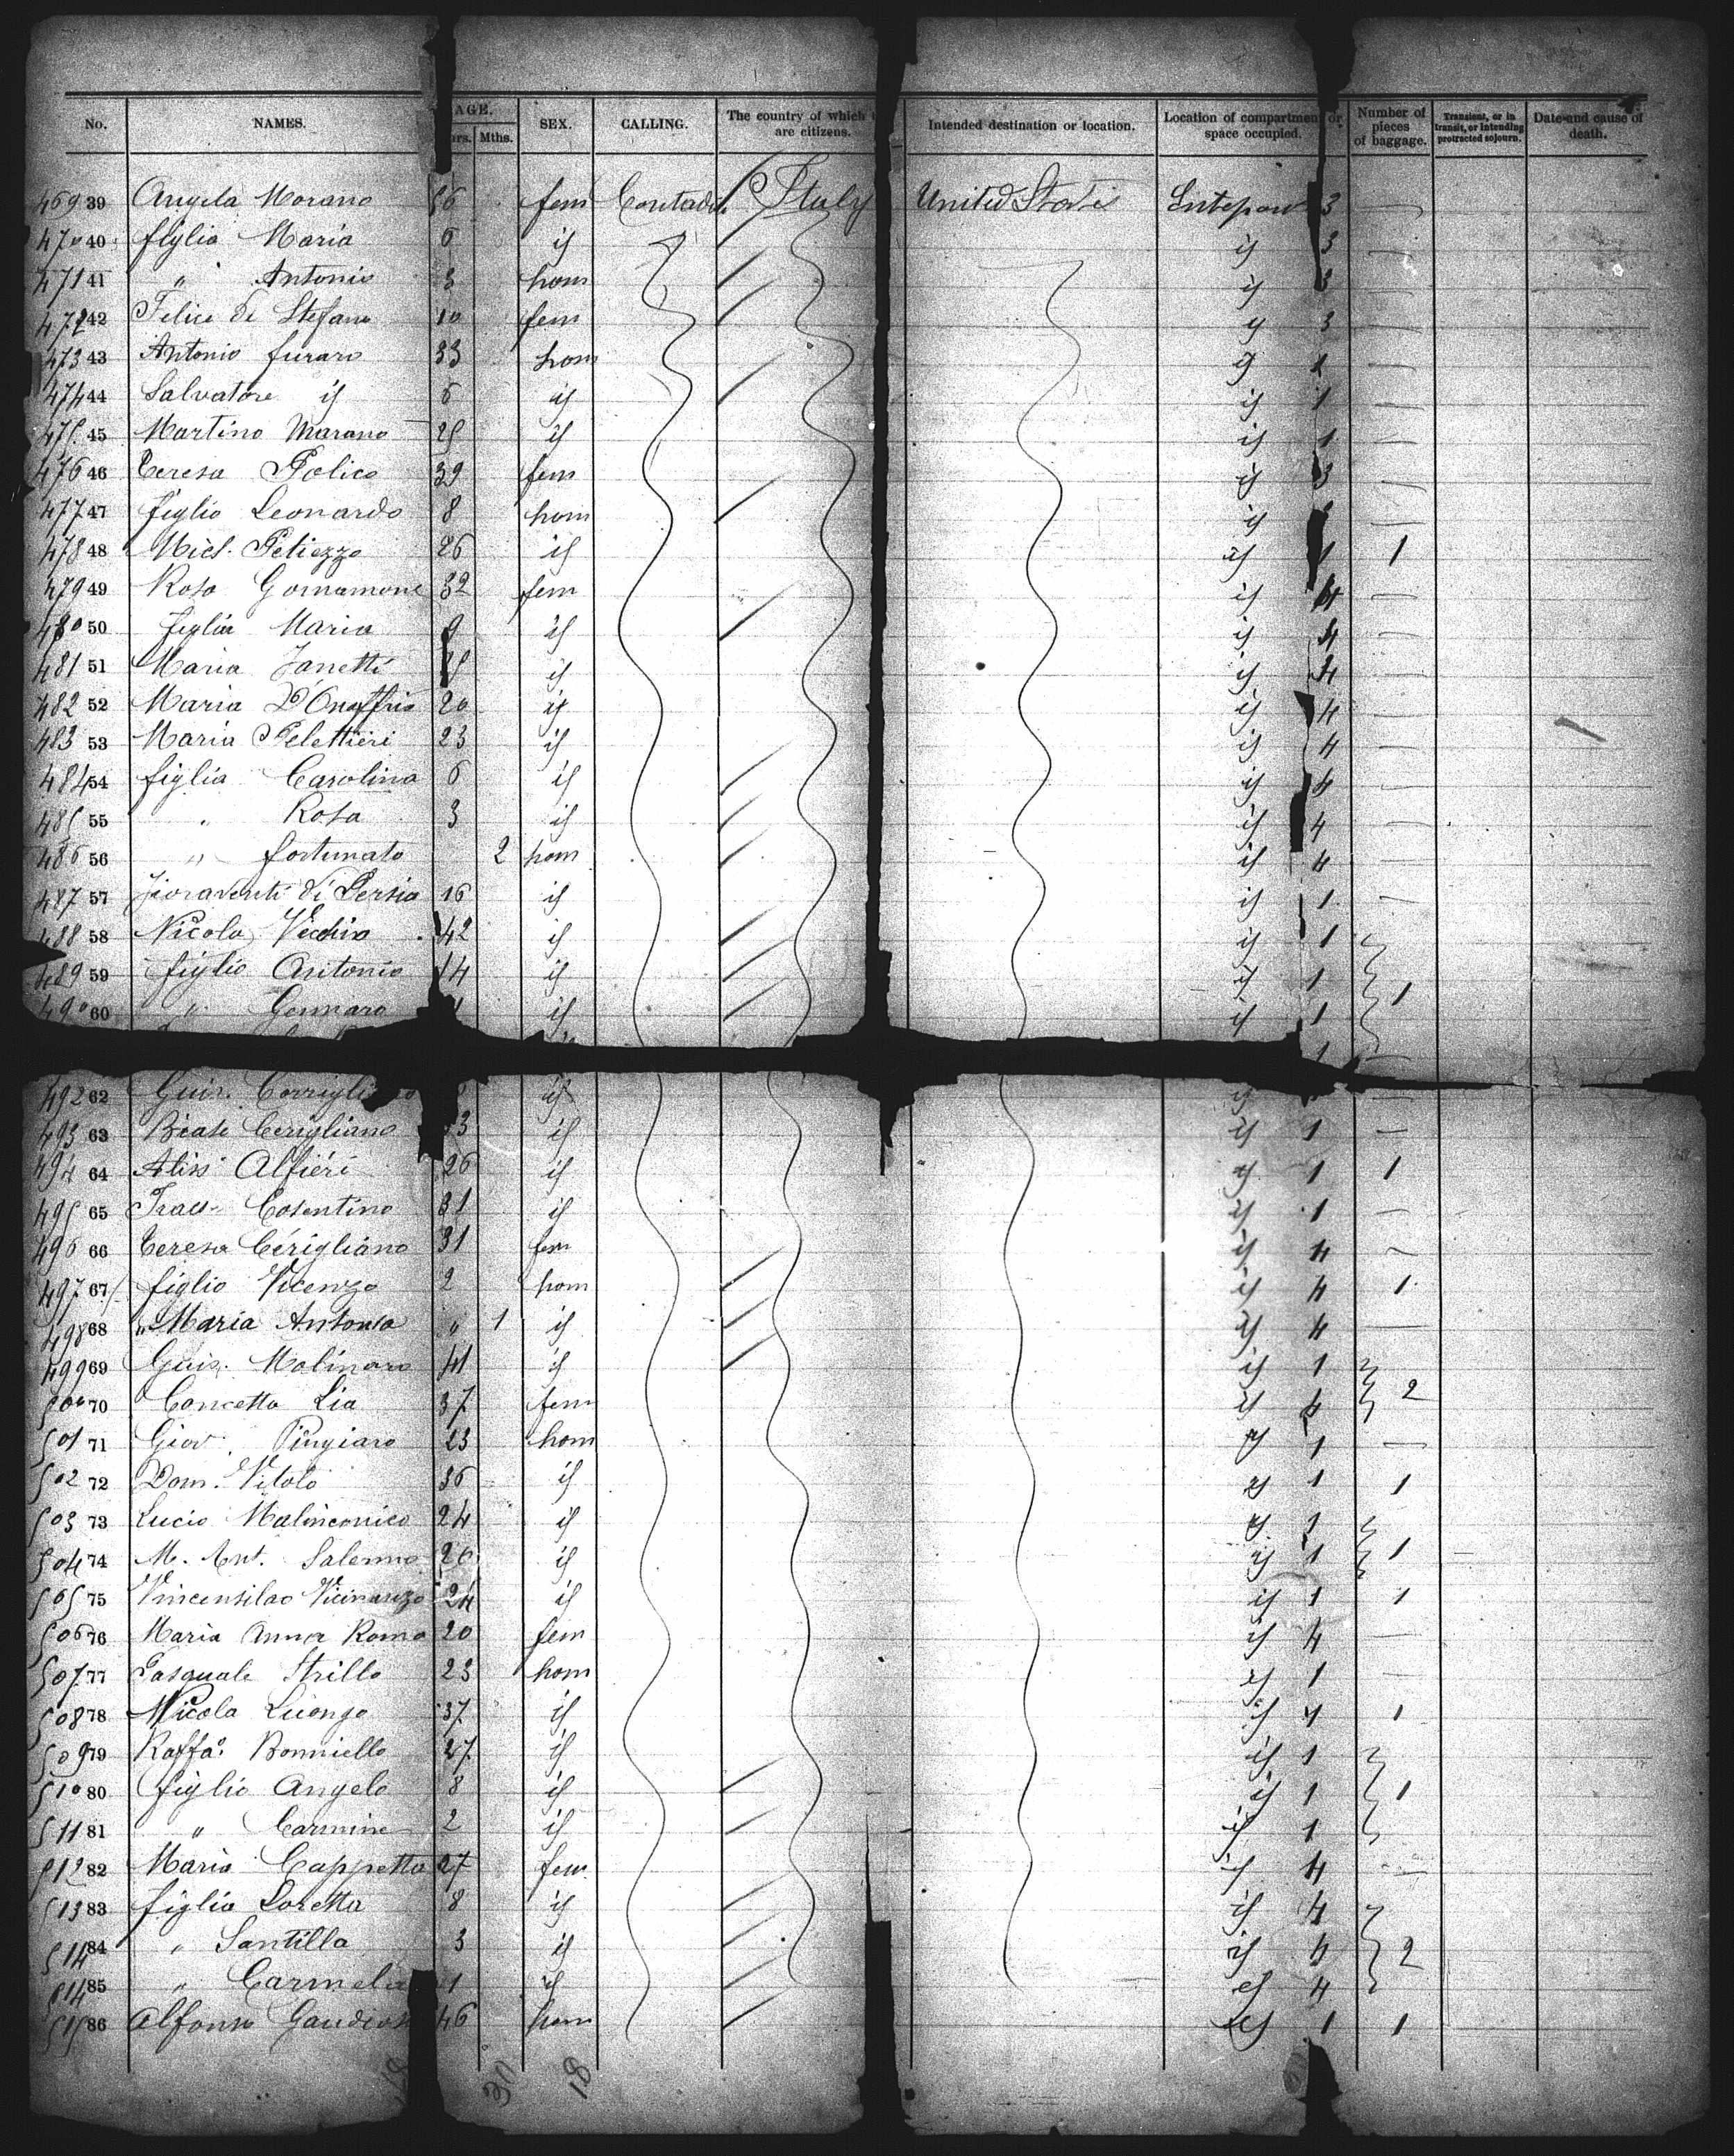 No. NAMES. AGE. Mths. SEX. CALLING. The country of which are citizens. Intended destination or location. Location of compartment or space occupied. Number of pieces of baggage. Transient, or in transit, or intending protracted sojourn. Date and cause of death.
469 39 Angela Morano 56 fem Contad. Italy United States Entrepont 3 —
470 40 figlia Maria 6 id id 3 —
471 41 " Antonio 3 hom id 3 —
472 42 Felice de Stefano 10 fem id 3 —
473 43 Antonio furaro 33 hom id 1 —
474 44 Salvatore id 6 id id 1 —
475 45 Martino Marano 25 id id 1 —
476 46 Teresa Polico 39 fem id 3 —
477 47 figlio Leonardo 8 hom id —
478 48 Mich. Peliezzo 26 id id 1 1
479 49 Rosa 32 fem id 4 —
480 50 figlia Maria 9 id id 4 —
481 51 Maria Zanetti id id 4 —
482 52 Maria D'Onoffrio 20 id id 4 —
483 53 Maria Pelettieri 23 id id 4 —
484 54 figlia Carolina 6 id id 4 —
485 55 " Rosa 3 id id 4 —
486 56 " fortunato 2 hom id 4 —
487 57 fioraventi di Persia 16 id id 1 —
488 58 Nicola Vecchio 42 id id 1
489 59 figlio Antonio 14 id id 1 1
490 60 " Gennaro id id 1
1 —
492 62 Guis. id id —
493 63 Biase Cerigliano 33 id id 1 —
494 64 Aless Alfieri 26 id id 1 1
495 65 Frac. Cosentino 31 id id 1 —
496 66 Teresa Cerigliano 31 fem id 4 —
497 67 figlio Vicenzo 2 hom id 4 1
498 68 " Maria Antonia " 1 id id 4 —
499 69 Guis. Molinaro 41 id id 1
500 70 Concetta Lia 37 fem id 4 2
501 71 Giov. Pingiaro 23 hom id 1 —
502 72 Dom. Vitolo 36 id id 1 1
503 73 Lucio Malinconico 24 id id 1
504 74 M. Ant. Salerno 26 id id 1 1
505 75 24 id id 1 1
506 76 Maria Anna Roma 20 fem id 4 —
507 77 Pasquale Strillo 23 hom id 1 —
508 78 Nicola Luongo 37 id id 1 1
509 79 Raffa. Bonniello 27 id id 1
510 80 figlio Angelo 8 id id 1 1
511 81 " Carmine 2 id id 1
512 82 Maria Cappetta 27 fem id 4 —
513 83 figlia Loretta 8 id id 4
514 84 " Santilla 3 id id 4 2
514 85 " Carmela 1 id id 4
515 86 Alfonso Gaudioso 46 hom id 1 1
30 18